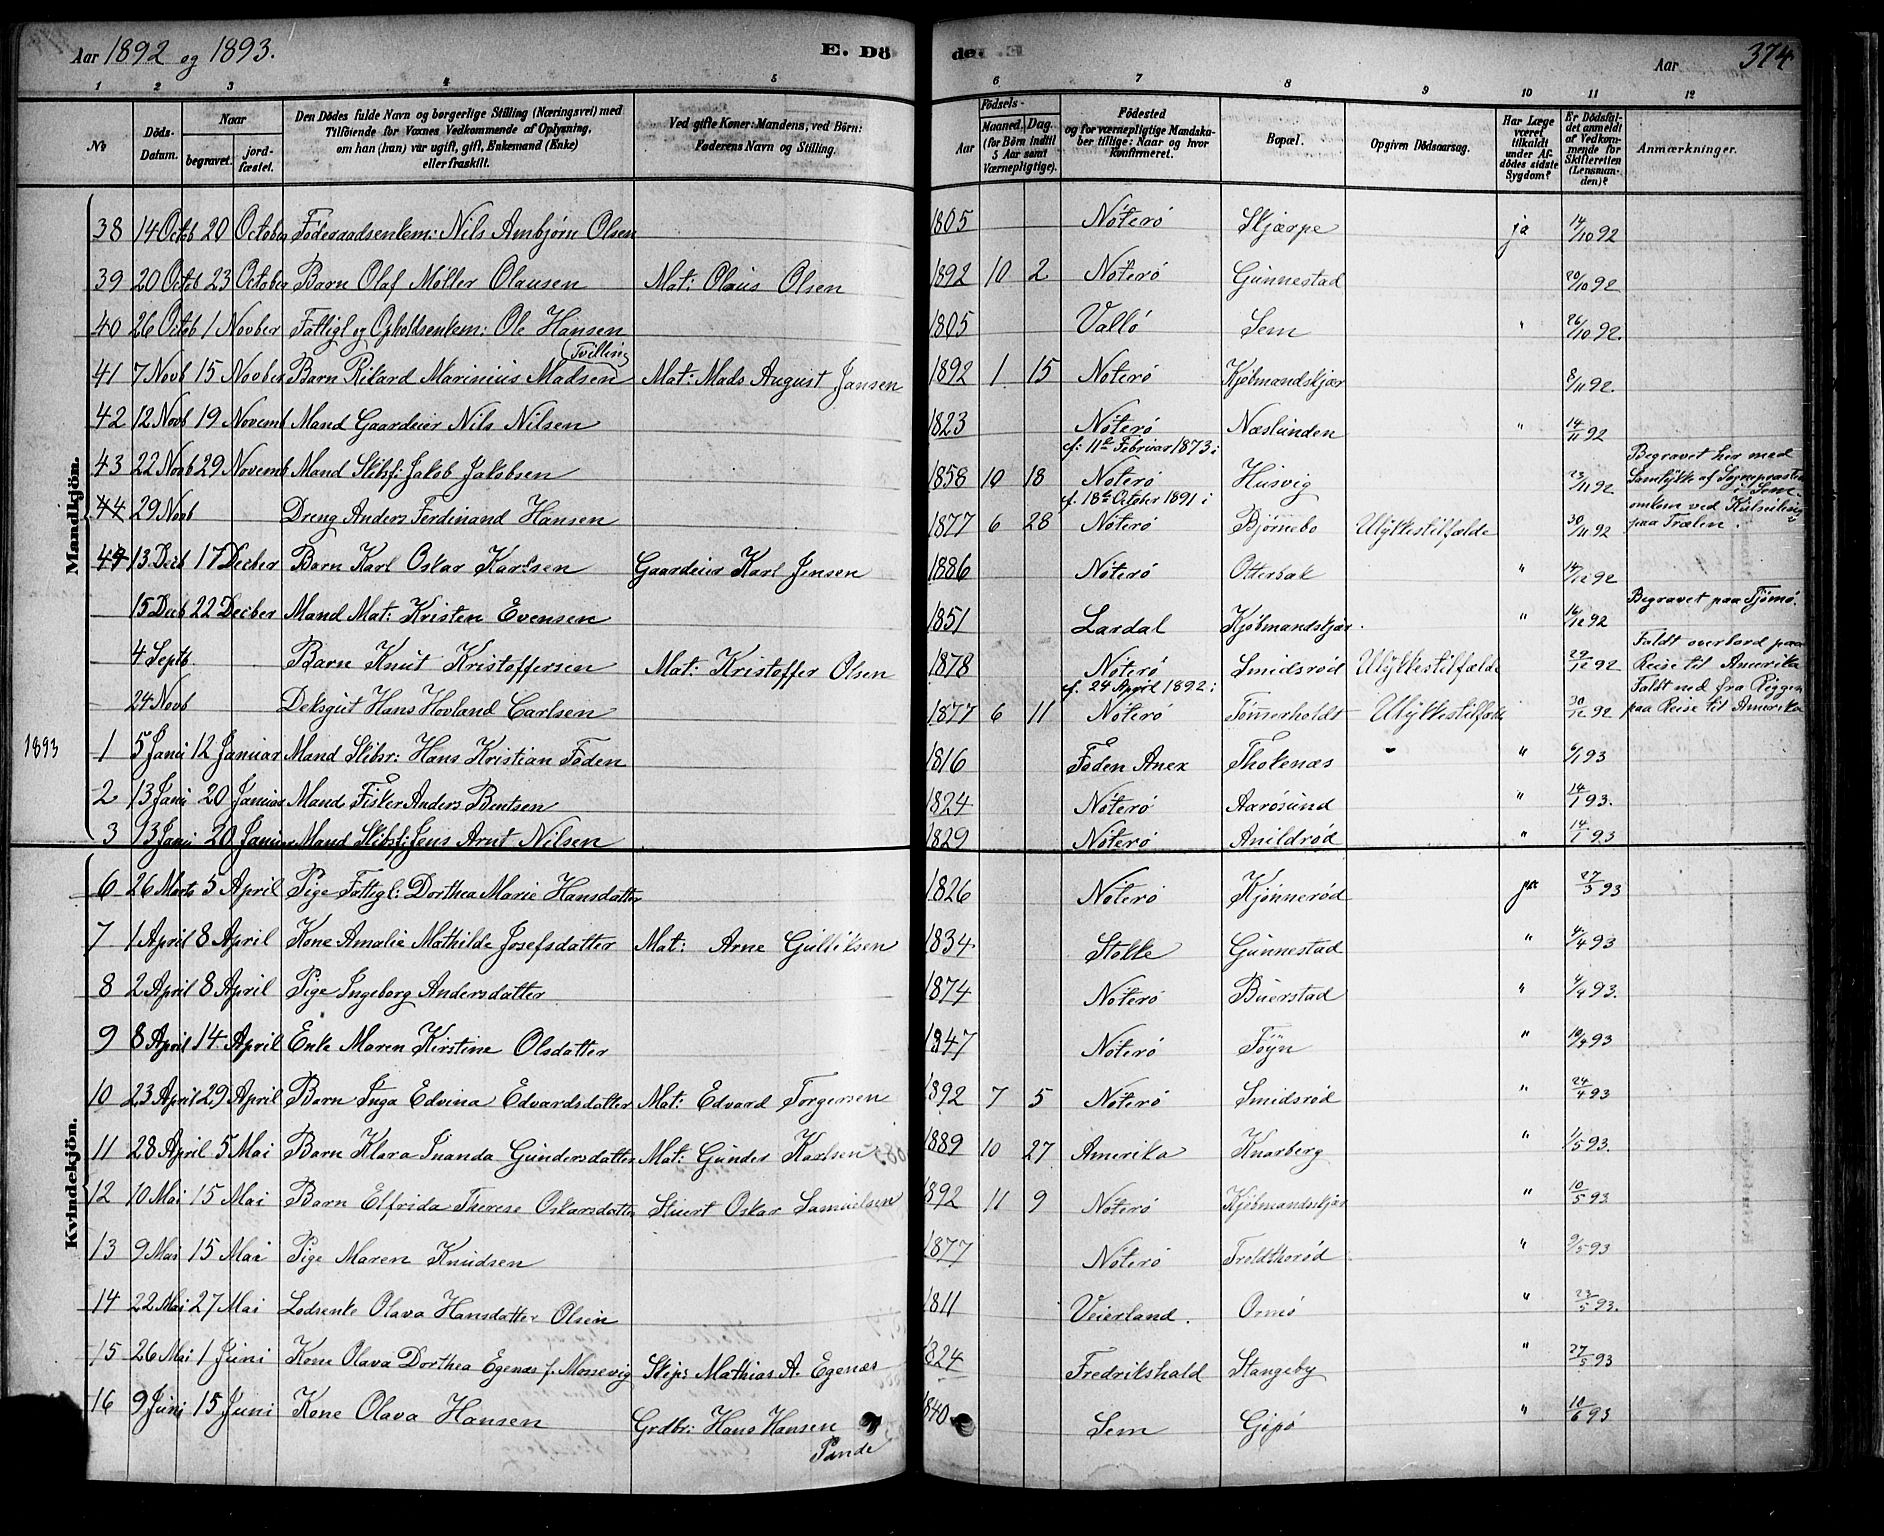 Aar 1892 og 1893. E. Dö de. Aar 374
1 2 3 4 5 6 7 8 9 10 11 12
No Döds-Datum. Naar begravet. jordfæstet. Den Dödes fulde Navn og borgerlige Stilling (Næringsvei) med Tilföiende for Voxnes Vedkommende af Oplysning, om han (hun) var ugift, gift, Enkemand (Enke) eller fraskilt. Ved gifte Koner: Mandens, ved Börn: Faderens Navn og Stilling. Födsels- Aar Maaned. Dag. (for Börn indtil 5 Aar samt Værnepligtige). Födested og for værnepligtige Mandskaber tillige: Naar og hvor konfirmeret. Bopæl. Opgiven Dödsaarsag. Har Læge været tilkaldt under Afdödes sidste Sygdom? Er Dödsfaldet anmeldt af Vedkommende for Skifteretten (Lensmanden)? Anmærkninger.
Mandkjön.
38 14 Octb 20 October Föderaadsenkem: Nils Ambjörn Olsen 1805 Nöterö Skjærpe ja 14/10 92
39 20 Octb 23 October Barn Olaf Möller Olausen Mat: Olaus Olsen 1892 10 2 Nöterö Gunnestad 20/10 92
40 26 Octb 1 Novber Fattigl og Opholdsenkem: Ole Hansen 1805 Vallö Sem " 26/10 92.
41 7 Novb 15 Novber Barn Rikard Marinius Madsen (Tvilling) Mat: Mads August Jansen 1892 1 15 Nöterö Kjöbmandskjær 8/11 92
42 12 Novb 19 Novemb Mand Gaardeier Nils Nilsen 1823 Nöterö Næslunden " 14/11 92
43 22 Novb 29 Novemb Mand Skibsf: Jakob Jakobsen 1858 10 18 c/: 11te Februar 1873 i Nöterö Husvig 23/11 92 Begravet her med Samtykke af Sogneprasten i Sem
44 29 Novb Dreng Anders Ferdinand Hansen 1877 6 28 c/: 18de October 1891 i Nöterö Björnebo Ulykkestilfælde 30/11 92 omkom ved paa Trælen.
44 13 Decb 17 Decber Barn Karl Oskar Karlsen Gaardeier Karl Jensen 1886 Nöterö Otterbæk " 14/12 92
15 Decb 22 Decber Mand Mat: Kristen Evensen 1851 Lardal Kjöbmandskjær. " 16/12 92 Begravet paa Tjömö.
4 Septb. Barn Knut Kristoffersen Mat: Kristoffer Olsen 1878 Nöterö Smidsröd Ulykkestilfælde 29/12 92 Faldt overbord paa Reise til Amerika
24 Novb Deksgut Hans Hovland Carlsen 1877 6 11 c/: 24 April 1892 i Nöterö Tömmerholdt Ulykkestilfælde 30/12 92 Faldt ned fra Riggen paa Reise til Amerika
1893 1 5 Janu 12 Januar Mand Skibsr: Hans Kristian Föden 1816 Föden Anex Tholenæs " 6/1 93
2 13 Janu 20 Januar Mand Fisker Anders Bentsen 1824 Nöterö Aarösund " 14/1 93.
3 13 Janu 20 Januar Mand Skibsf: Jens Arnt Nilsen 1829 Nöterö Anildröd " 14/1 93
Kvindekjön.
6 26 Marts 5 April Pige Fattigl: Dorthea Marie Hansdatter 1826 Nöterö Kjönneröd ja 27/3 93
7 1 April 8 April Kone Amalie Mathilde Josefsdatter Mat: Arne Gulliksen 1834. Stokke Gunnestad " 4/4 93
8 2 April 8 April Pige Ingeborg Andersdatter 1874 Nöterö Buerstad " 4/4 93.
9 8 April 14 April Enke Maren Kirstine Olsdatter 1847 Nöterö Föyn " 10/4 93
10 23 April 29 April Barn Inga Edvina Edvardsdatter Mat: Edvard Torgersen 1892 7 5 Nöterö Smidsröd " 24/4 93
11 28 April 5 Mai Barn Klara Inanda Gundersdatter Mat: Gunder Karlsen 1889 10 27 Amerika Knarberg " 1/5 93.
12 10 Mai 15 Mai Barn Elfrida Therese Oskarsdatter Stuert Oskar Samuelsen 1892 11 9 Nöterö Kjöbmandskjær " 10/5 93.
13 9 Mai 15 Mai Pige Maren Knudsen 1877 Nöterö Troldthoröd " 9/5 93
14 22 Mai 27 Mai Lodsenke Olava Hansdatter Olsen 1811 Veierland. Ormö " 23/5 93.
15 26 Mai 1 Juni Kone Olava Dorthea Egenæs f. Mossevig Skips Mathias A. Egenæs 1824 Fredrikshald Stangeby " 27/5 93
16 9 Juni 15 Juni Kone Olava Hansen Grdbr: Hans Hansen Pande 1840. Sem Gipö " 10/6 93